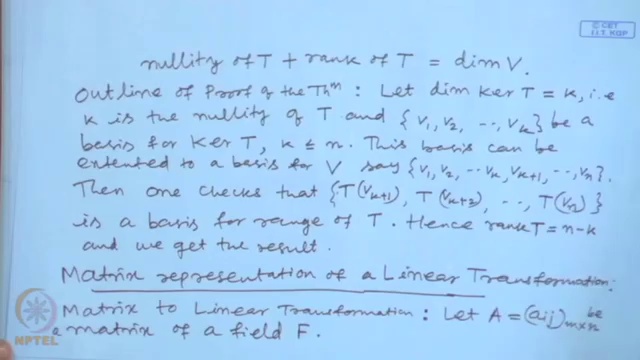 © CET
I.I.T. KGP
nullity of T + rank of T = dim V.
Outline of Proof of the Thm : Let dim Ker T = k, i.e
k is the nullity of T and {v1, v2, ⋯, vk} be a
basis for Ker T, k ≤ n. This basis can be
extented to a basis for V say {v1, v2, ⋯ vk, vk+1, ⋯, vn}.
Then one checks that {T(vk+1), T(vk+2), ⋯, T(vn)}
is a basis for range of T. Hence rank T = n-k
and we get the result.
Matrix representation of a Linear Transformation:
Matrix to Linear Transformation : Let A = (aij)m×n be
a matrix of a field F.
NPTEL